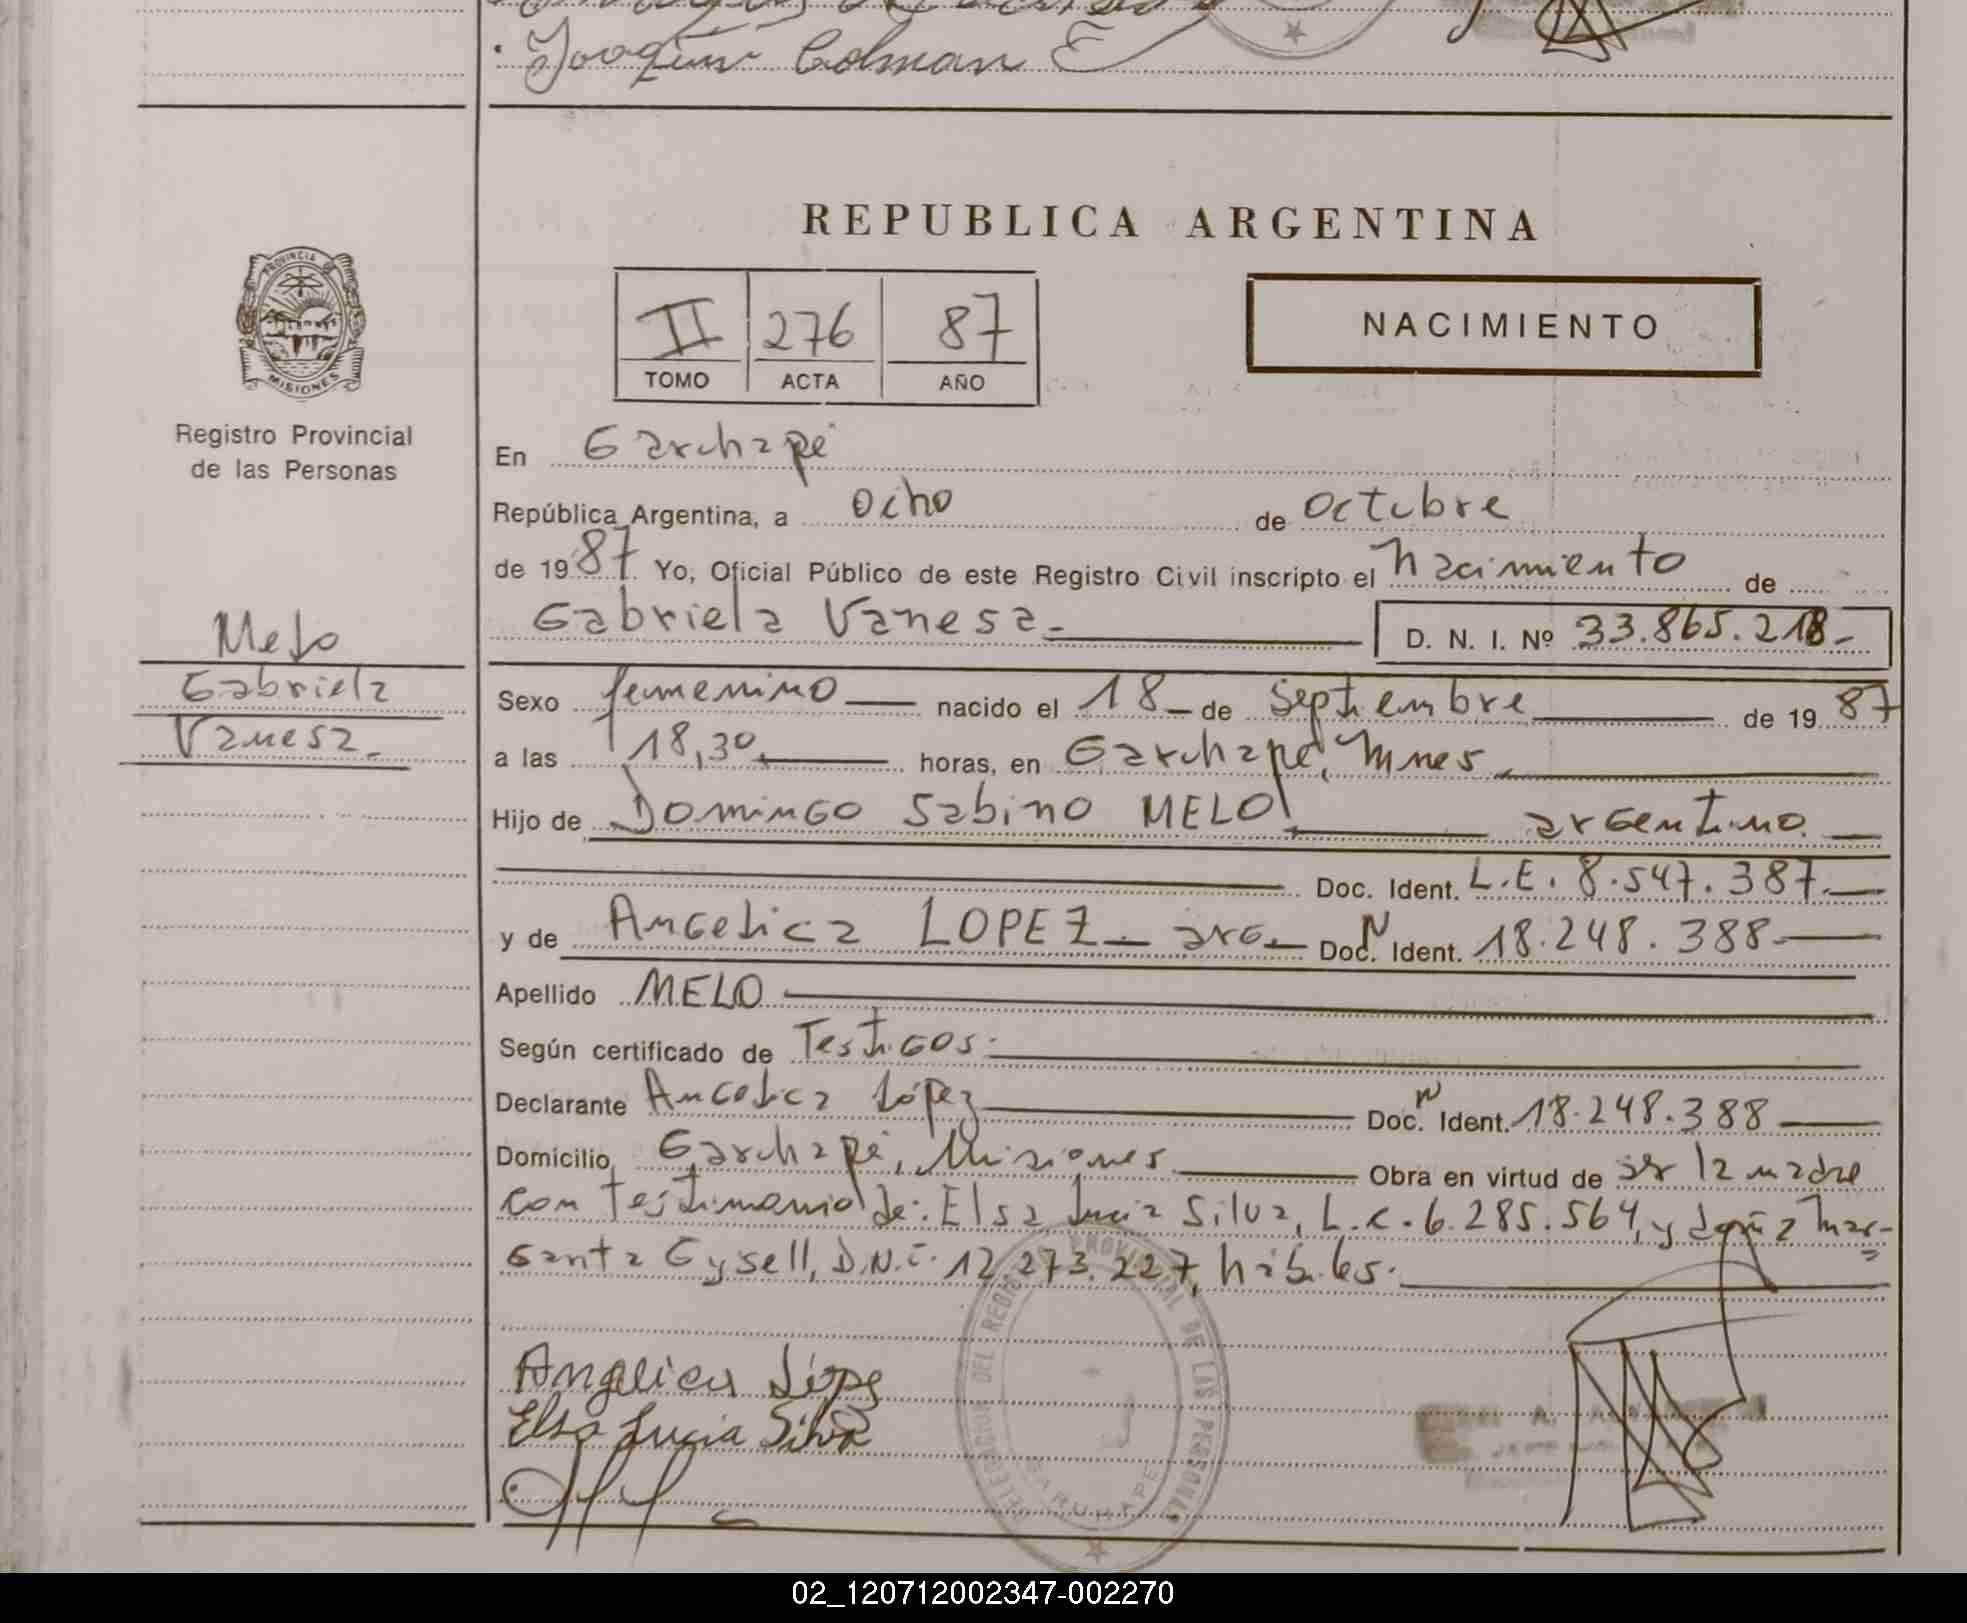 Joaquin Colman E
REPUBLICA ARGENTINA
PROVINCIA DE
MISIONES
Registro Provincial
de las Personas
II 276 87
TOMO ACTA AÑO
NACIMIENTO
En Garuhapé
República Argentina, a ocho de octubre
de 1987. Yo, Oficial Público de este Registro Civil inscripto el nacimiento de
Gabriela Vanesa.- D. N. I. Nº 33.865.218-
Melo
Gabriela
Vanesa.-
Sexo femenino nacido el 18 de septiembre de 1987
a las 18,30 horas, en Garuhapé, Mnes.
Hijo de Domingo Sabino MELO argentino.
Doc. Ident. L.E. 8.547.387.
y de Angelica LOPEZ arg. Doc. N Ident. 18.248.388
Apellido MELO
Según certificado de Testigos.
Declarante Angelica López Doc. N Ident. 18.248.388
Domicilio Garuhapé, Misiones Obra en virtud de ser la madre
con testimonio de: Elsa Lucia Silva, L.C. 6.285.564, y Mar-
garita Gysell, D.N.I. 12.273.227, hábiles.
Angelica Lópe
Elsa Lucia Silva
DELEGACION DEL REGISTRO PROVINCIAL DE LAS PERSONAS
GARUHAPE
02_120712002347-002270